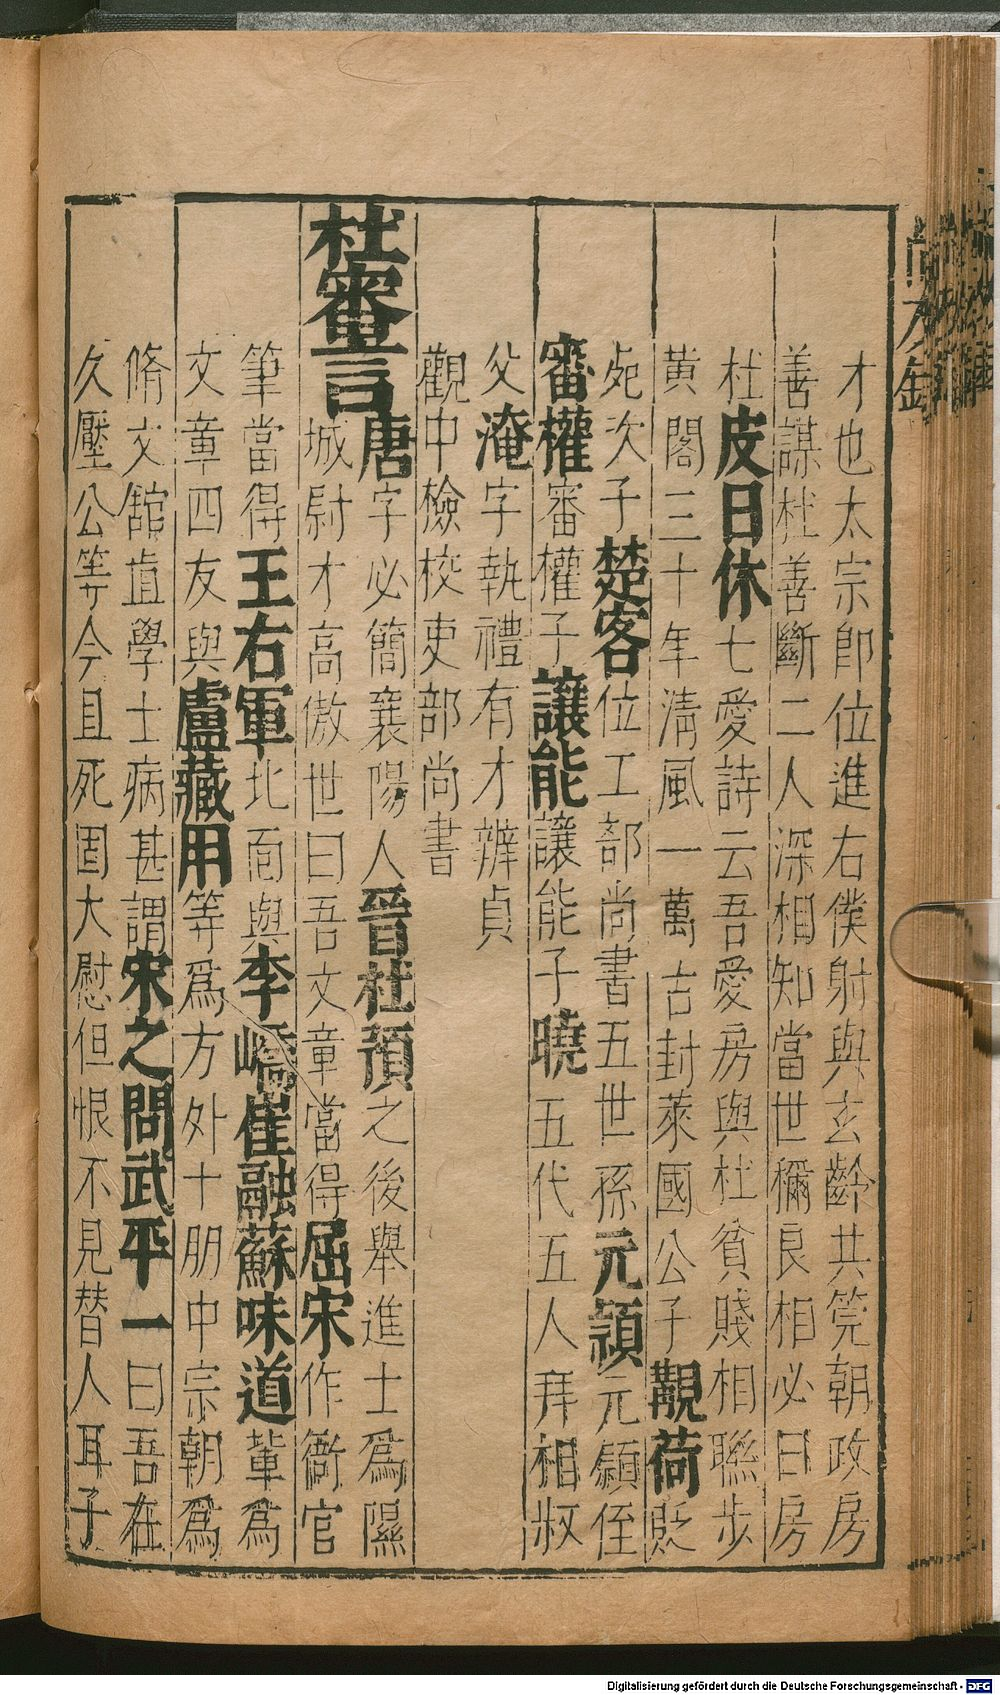 才也太宗卽位進右僕射與玄齡共筦朝政房
善謀杜善斷二人深相知當世稱良相必曰房
杜皮日休七愛詩云吾愛房與杜貧賤相聯步
黃閣三十年淸風一萬古封萊國公子覯荷貶
死次子楚客位工部尚書五世孫元頴元頴侄
審權審權子讓能讓能子曉五代五人拜相叔
父淹字執禮有才辨貞
觀中檢校吏部尚書
杜審言唐字必簡襄陽人晉杜預之後舉進士爲隰
城尉才高傲世曰吾文章當得屈宋作衙官
筆當得王右軍北面與李嶠崔融蘇味道輩爲
文章四友與盧藏用等爲方外十朋中宗朝爲
脩文舘直學士病甚謂宋之問武平一曰吾在
久壓公等今且死固大慰但恨不見替人耳子
Digitalisierung gefördert durch die Deutsche Forschungsgemeinschaft - DFG